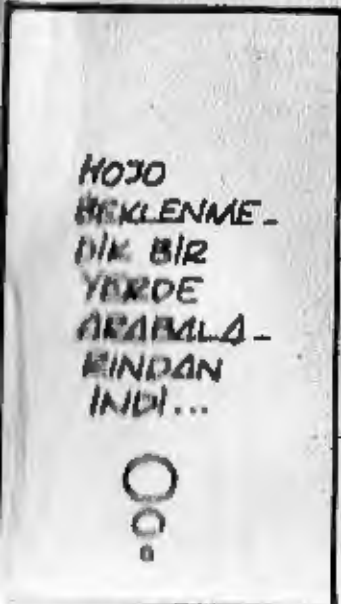 HOJO
BEKLENME-
DİK BİR
YERDE
ARABALA-
RINDAN
İNDİ...